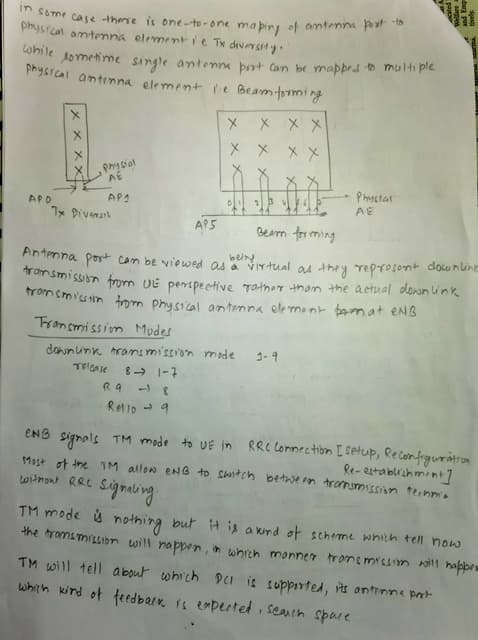 In some case there is one-to-one maping of antenna port to
physical antenna element i.e Tx diversity.
while sometime single antenna port can be mapped to multiple
physical antenna element i.e Beamforming
Physical
AE
AP0
AP1
Tx Diversit
0 1 2 3 4 5 6 7
Physical
AE
AP5
Beam forming
Antenna port can be viewed as being a virtual as they represent downlink
transmission from UE perspective rather than the actual downlink
transmission from physical antenna element at eNB
Transmission Modes
downlink transmission mode 1-9
release 8 → 1-7
R9 → 8
Rel10 → 9
eNB signals TM mode to UE in RRC Connection [Setup, Reconfiguration
Re-establishment]
Most of the TM allow eNB to switch between transmission techniq
without RRC Signaling.
TM mode is nothing but it is a kind of scheme which tell how
the transmission will happen, in which manner transmission will happen
TM will tell about which DCI is supported, its antenna port
which kind of feedback is expected, search space